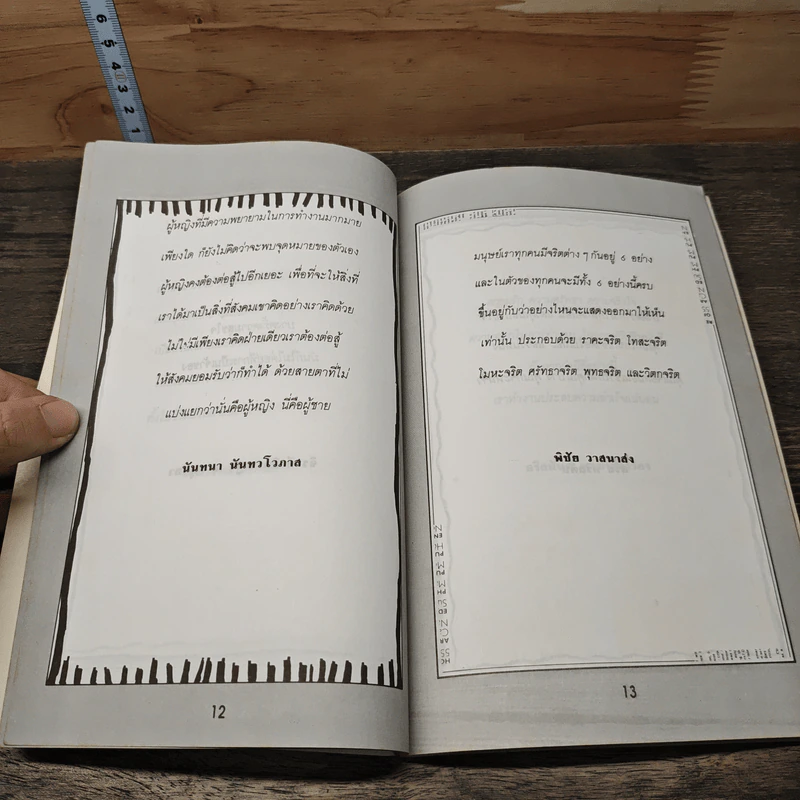 ผู้หญิงที่มีความพยายามในการทำงานมากมาย
เพียงใด ก็ยังไม่คิดว่าจะพบจุดหมายของตัวเอง
ผู้หญิงคงต้องต่อสู้ไปอีกเยอะ เพื่อที่จะให้สิ่งที่
เราได้มาเป็นสิ่งที่สังคมเขาคิดอย่างเราคิดด้วย
ไม่ใช่มีเพียงเราคิดฝ่ายเดียวเราต้องต่อสู้
ให้สังคมยอมรับว่าก็ทำได้ ด้วยสายตาที่ไม่
แบ่งแยกว่านั่นคือผู้หญิง นี่คือผู้ชาย
นันทนา นันทวโรภาส
12
มนุษย์เราทุกคนมีจริตต่าง ๆ กันอยู่ ๖ อย่าง
และในตัวของทุกคนจะมีทั้ง ๖ อย่างนี้ครบ
ขึ้นอยู่กับว่าอย่างไหนจะแสดงออกมาให้เห็น
เท่านั้น ประกอบด้วย ราคะจริต โทสะจริต
โมหะจริต ศรัทธาจริต พุทธจริต และวิตกจริต
พิชัย วาสนาส่ง
13
6 5 4 3 2 1